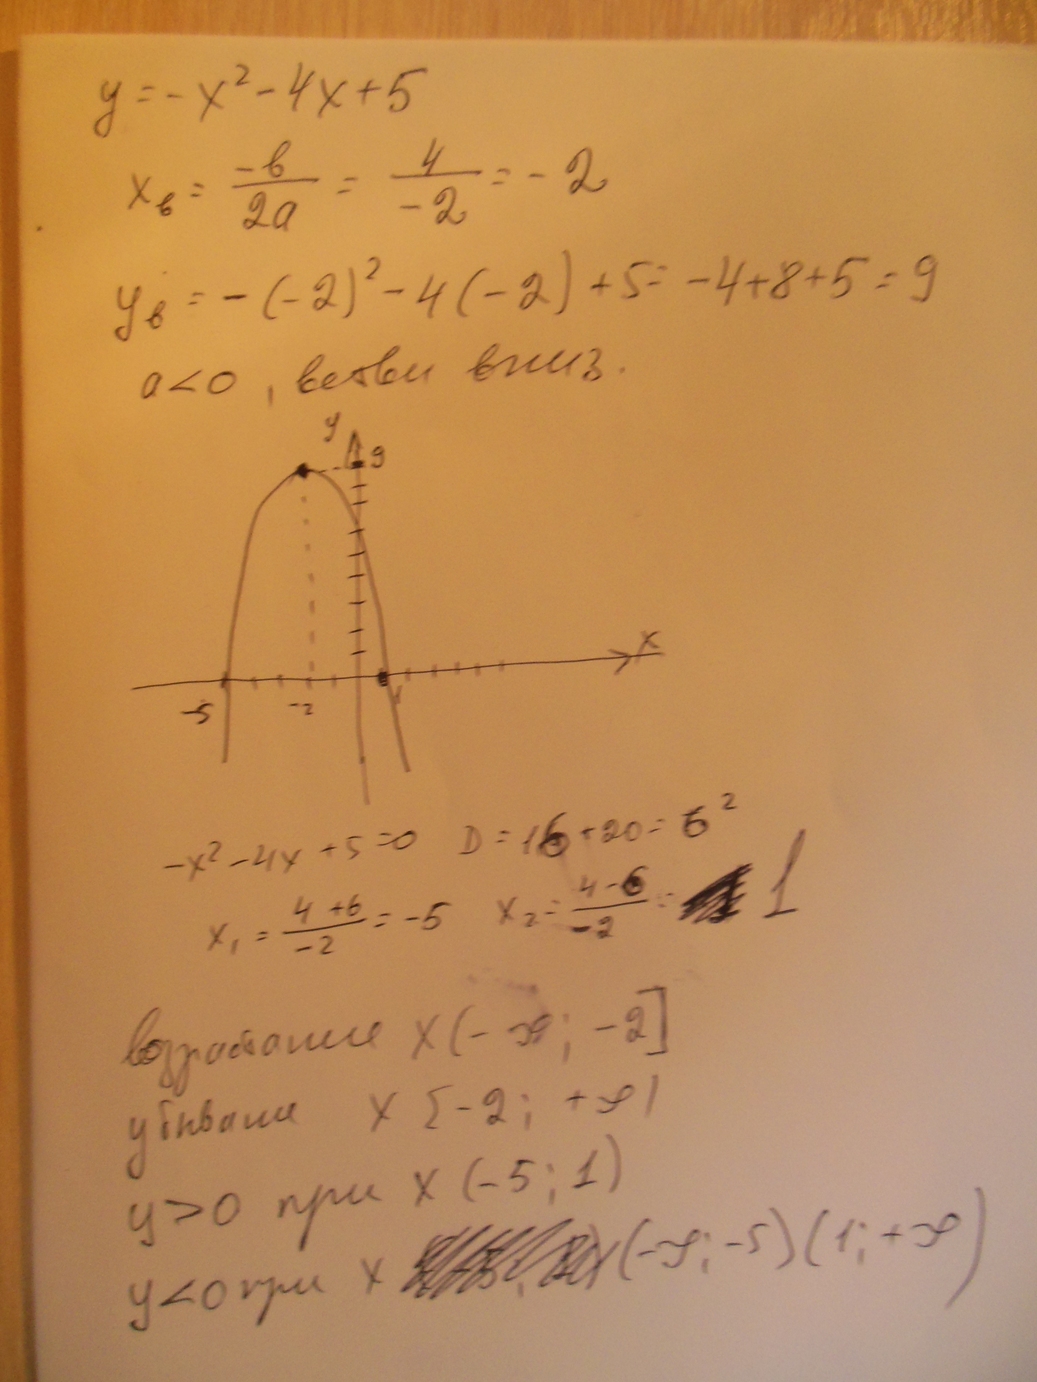 y = -x² - 4x + 5
xв = -в/2a = 4/-2 = -2
yв = -(-2)² - 4(-2) + 5 = -4+8+5 = 9
a<0, ветви вниз.
y
9
x
-5 -2 1
-x² - 4x + 5 = 0 D = 16 + 20 = 6²
x₁ = 4+6/-2 = -5 x₂ = 4-6/-2 = 1
возрастание x (-∞; -2]
убывание x [-2; +∞)
y>0 при x (-5; 1)
y<0 при x (-∞; -5) (1; +∞)